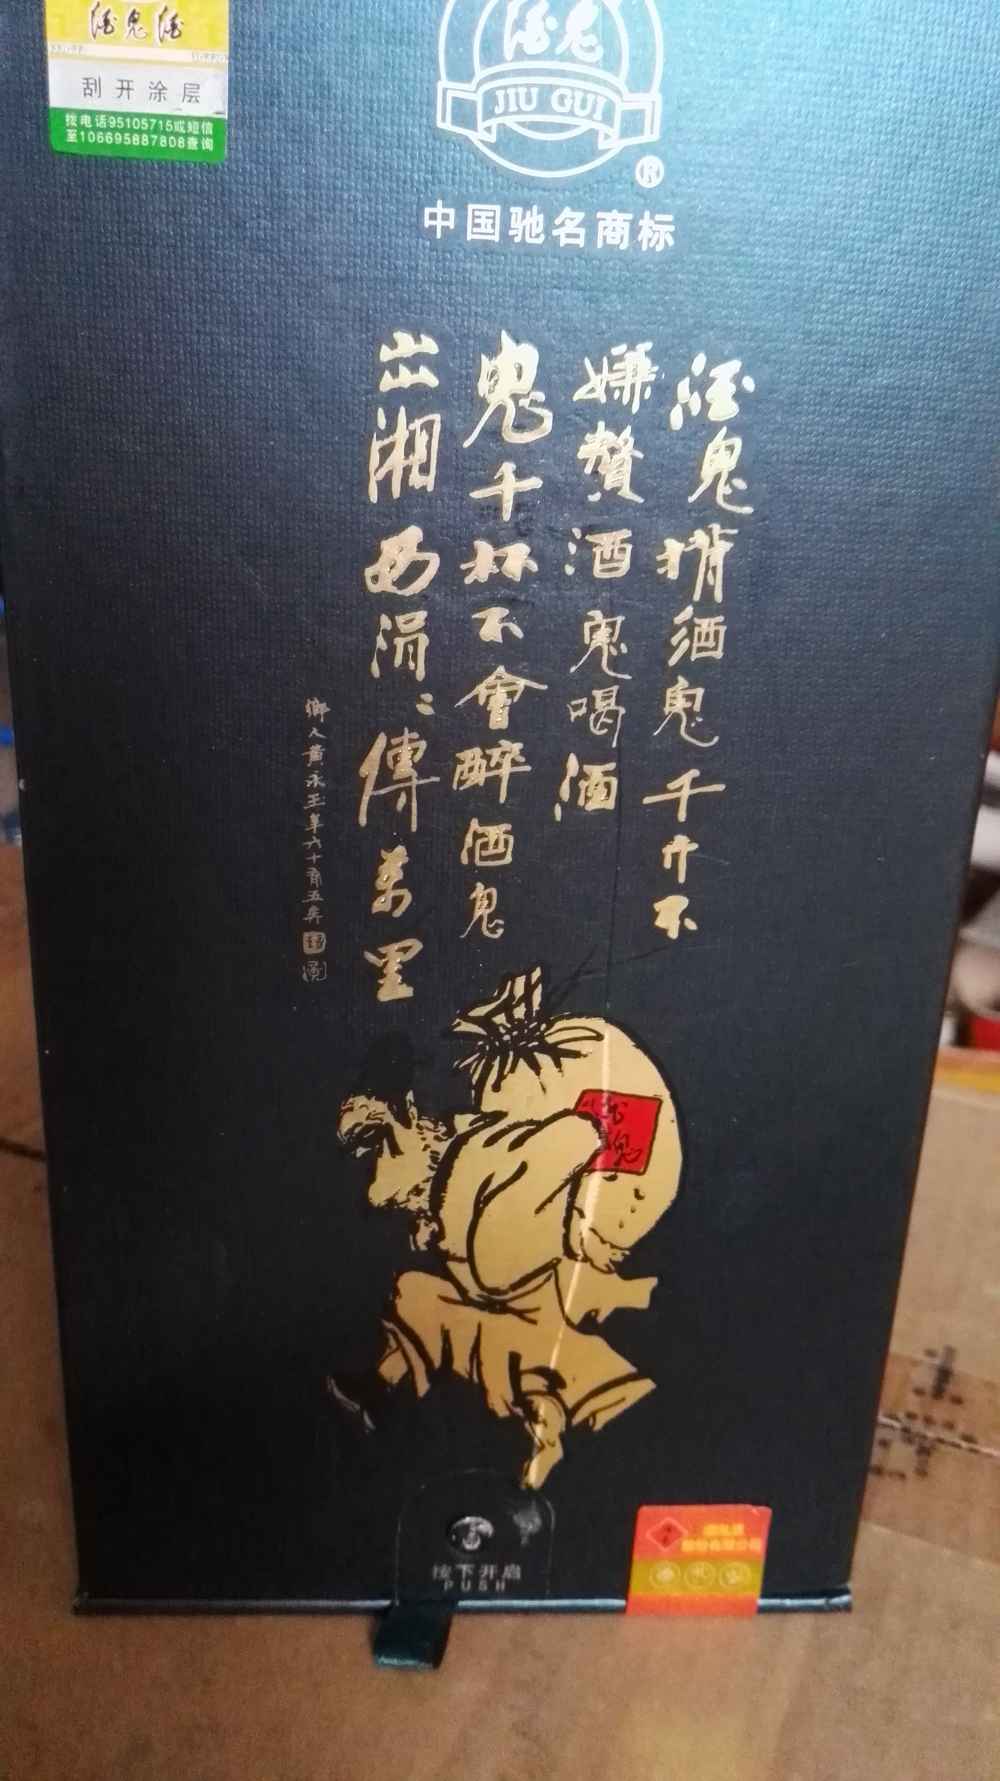 酒鬼酒
刮开涂层
拨电话95105715或短信
至106695887808查询
酒鬼
JIU GUI
®
中国驰名商标
酒鬼揹酒鬼千斤不
嫌贅酒鬼喝酒
鬼千杯不會醉酒鬼
出湘西涓〻傳萬里
鄉人黄永玉
酒鬼
按下开启
PUSH
股份有限公司